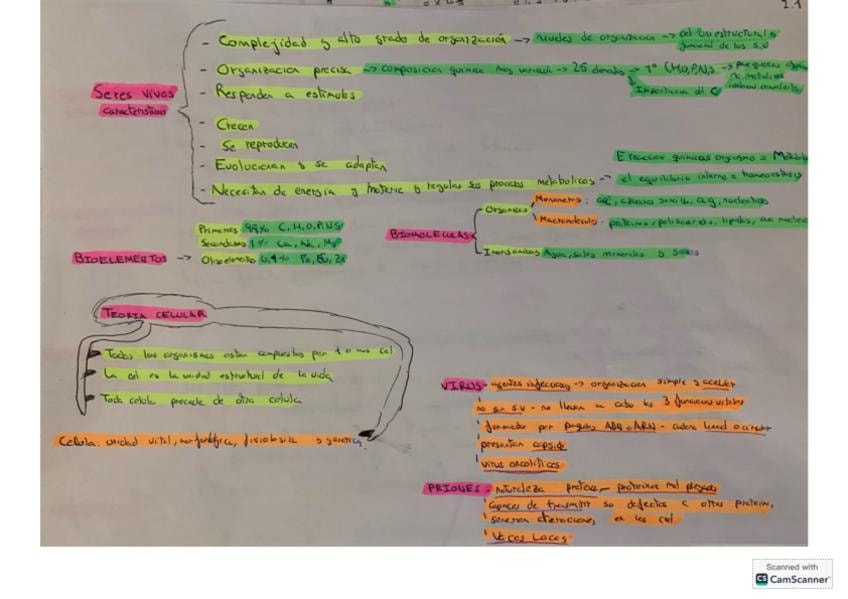 2.1
- Complejidad y alto grado de organización → niveles de organización → cel Unestructural y funcional de los S.V
Seres vivos
características
- Organización precisa → composición química muy variada → 26 → 1º CHOPNS →
Importancia del C
- Responden a estímulos
- Crecen
- Se reproducen
- Evolucionan y se adaptan
E reacción químicas organismo =
- Necesitan de energía y materia y regulan sus procesos metabólicos → el equilibrio interno = homeostasis
BIOELEMENTOS →
Primarios 99% C, H, O, P, N, S
Secundarios 1% Ca, Na, Mg
Oligoelementos 0,1% Fe, Cu, Zn
BIOMOLÉCULAS
Orgánicas
Monómeros:
Macromolécula: proteínas, polisacáridos, lípidos,
Inorgánicas Agua, sales minerales y gases
TEORIA CELULAR
Todos los organismos están compuestos por 1 o más cel
La cel es la unidad estructural de la vida
Toda célula procede de otra célula
Célula: unidad vital, morfológica, fisiológica y genética
VIRUS - agentes infecciosos → organización simple y acelular
no son S.V - no llevan a cabo las 3 funciones vitales
formados por ADN o ARN - cadena lineal o circular
presentan cápside
virus oncolíticos
PRIONES - naturaleza proteica - proteínas mal plegadas
Capaces de transmitir su defectos a otras proteínas,
generan alteraciones en las cel
Vacas Locas
Scanned with
CS CamScanner